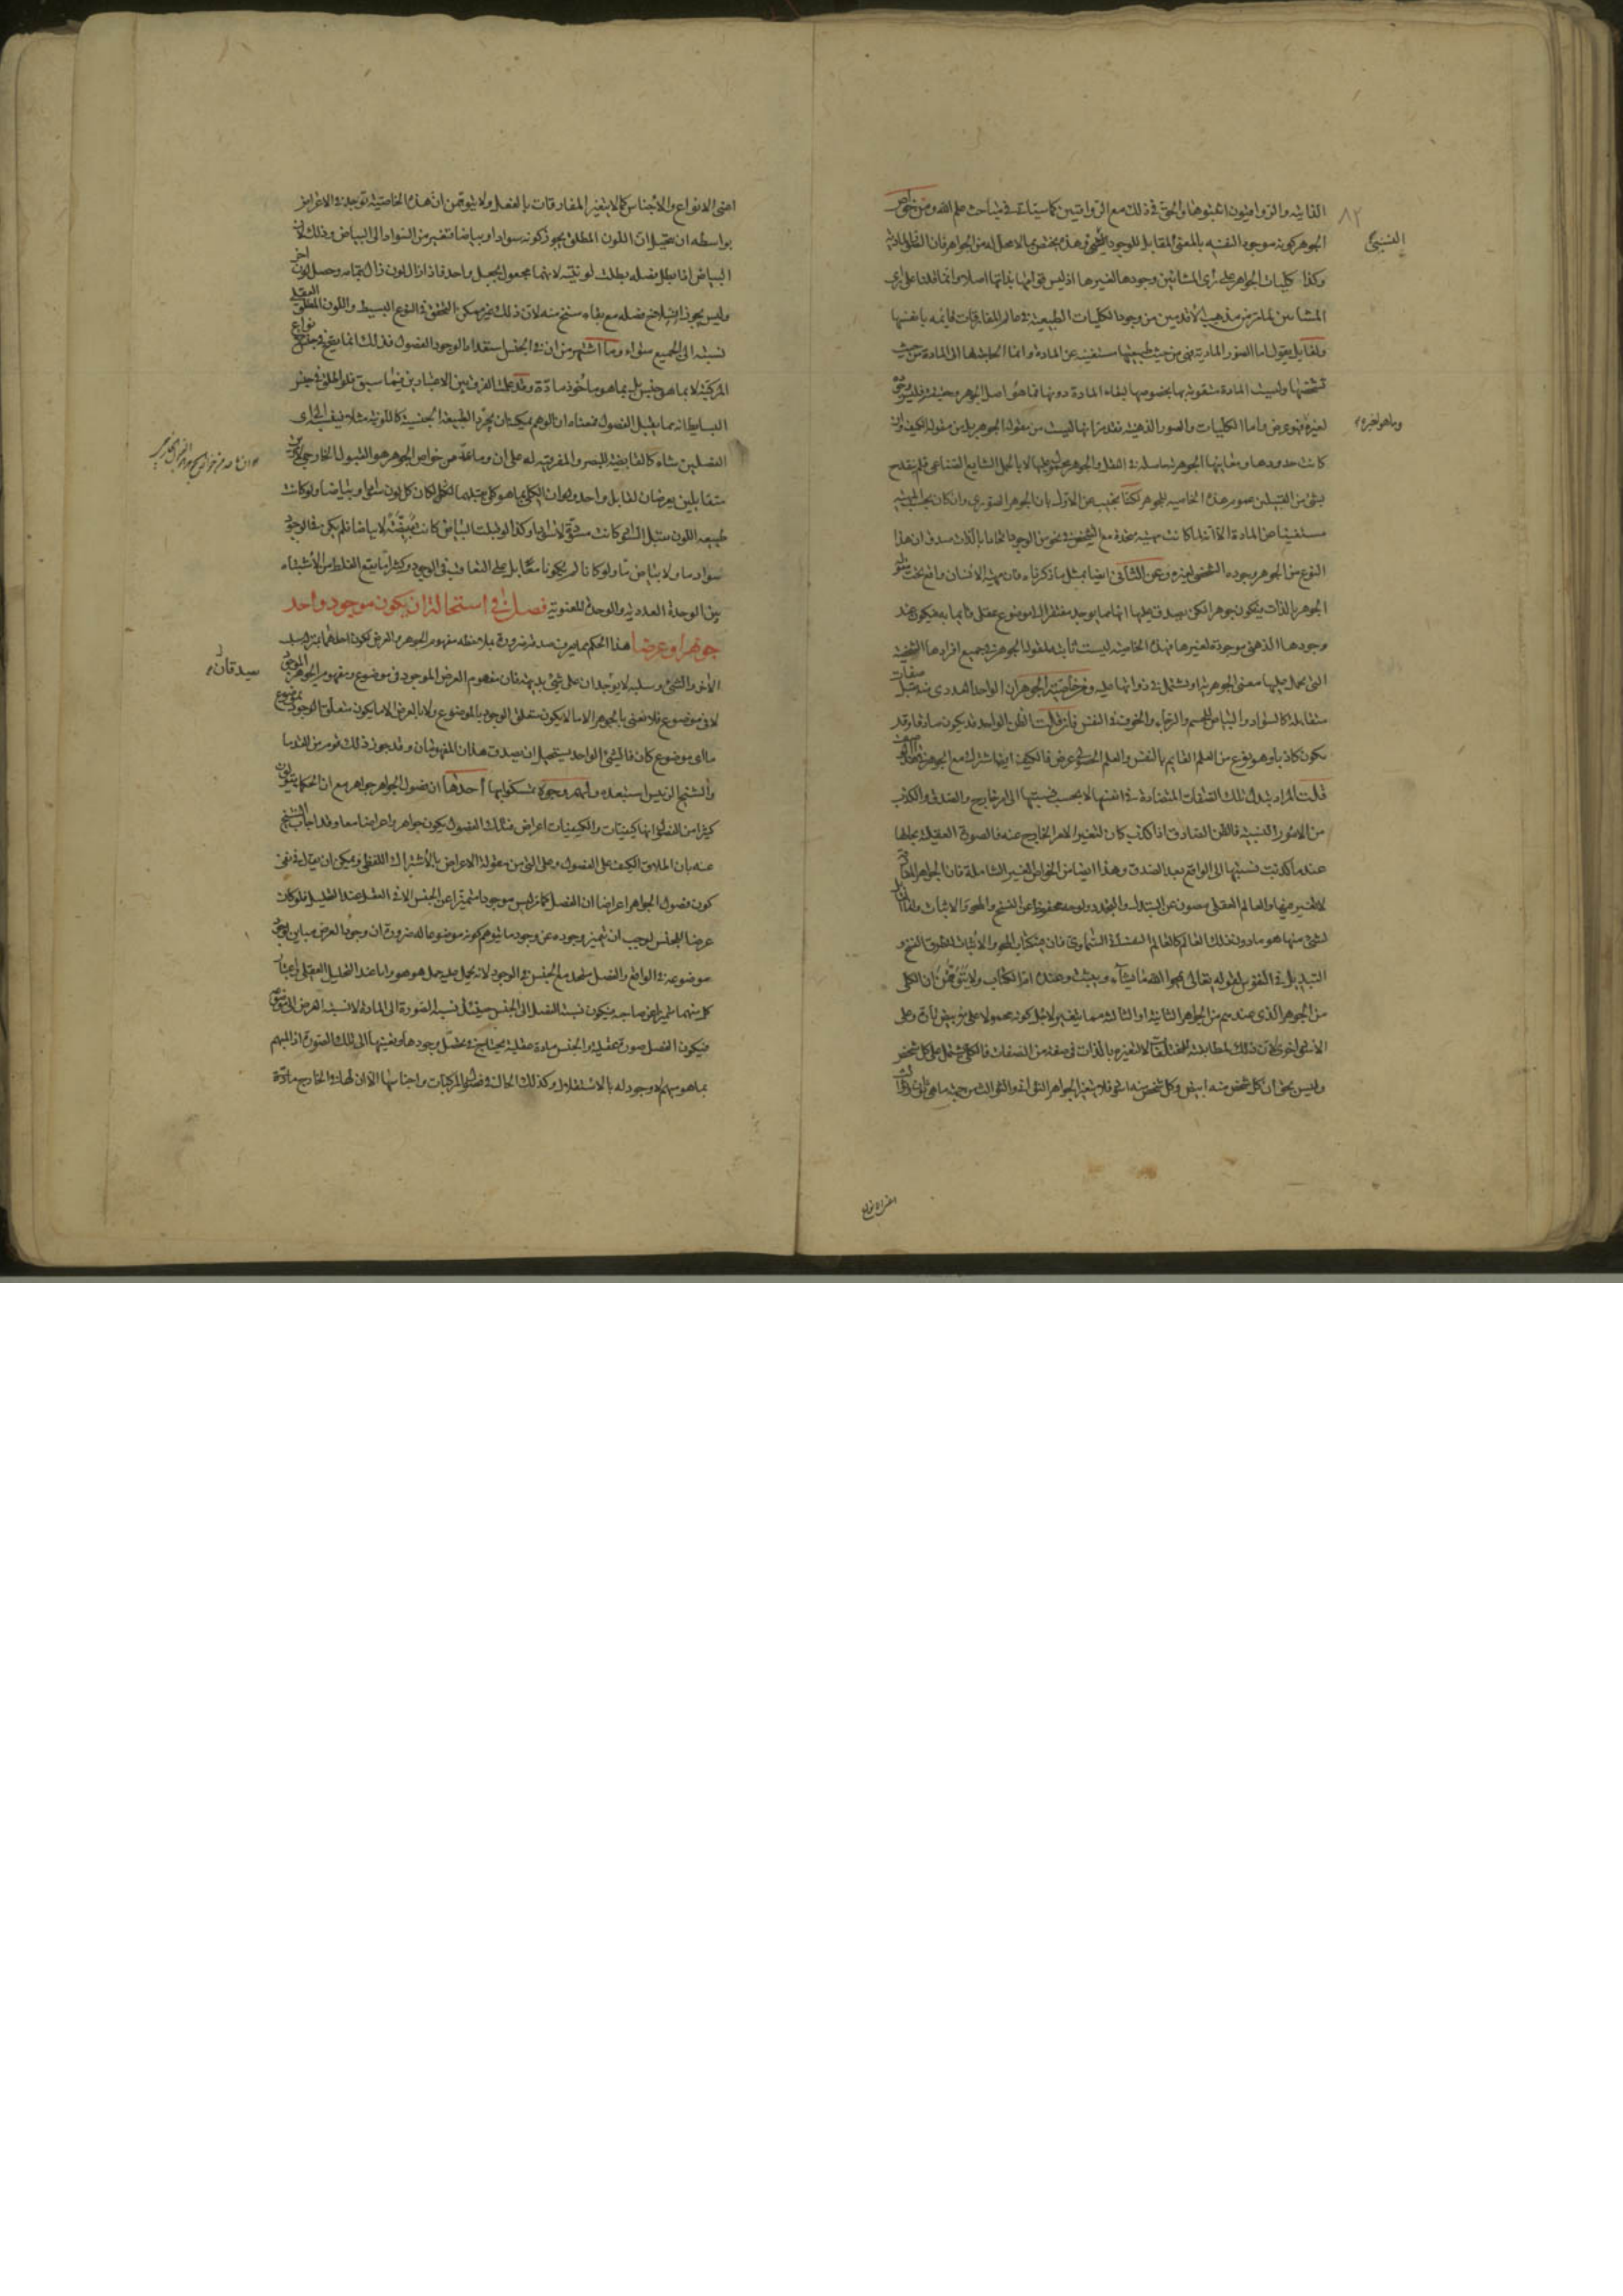 الذاتية والرواقيون اثبتوها والحق في ذلك مع الرواقيين كما سيأتى في مباحث علم الله ومن خواص
الجوهر كونه موجودا لنفسه بالمعنى المقابل للوجود النسبي وهذه يختص بالا محل له من الجواهر فان الصور المادية
وكذا كليات الجواهر على رأى المشائين وجودها لغيرها اذ ليس قوامها بذاتها اصلا وانما قلنا على رأى
المشائين لما مر من مذهب الأقدمين من وجود الكليات الطبيعية في عالم المفارقات قائمة بانفسها
ولقائل يقول اما الصور المادية فهى من حيث طبيعتها مستغنية عن المادة وانما الحاجة لها الى المادة من حيث
تشخصها وليست المادة متقومة بها بخصوصها لبقاء المادة دونها فما هو اصل الجوهر وحقيقته فليس وجوده
لغيره فهو عرض واما الكليات والصور الذهنية فقد مر انها ليست من مقولة الجوهر بل من مقولة الكيف وان
كانت حدودها ومعانيها الجوهرية حاصلة في العقل والجوهر محمول عليها لا بالحمل الشايع الصناعى فلم ينقدح
بشئ من القبيلين عموم هذه الخاصية للجوهر لكنا نجيب عن الاول بان الجوهر الصوري وان كان بحسب الماهية
مستغنيا عن المادة الا انه لما كانت مهيته متحدة مع الشخص في نحو من الوجود اتحادا بالذات صدق ان هذا
النوع من الجوهر وجوده الشخصى لغيره وعن الثانى ايضا بمثل ما ذكرناه فان مهية الانسان واقع تحت مقولة
الجوهر بالذات فيكون جوهرا لكن يصدق عليها انها مما يوجد مفتقرا الى موضوع عقلى قائما به فيكون عند
وجودها الذهنى موجودة لغيرها فهذه الخاصية ليست ثابتة لمقولة الجوهر في جميع افرادها الشخصية
التى يحمل عليها معنى الجوهرية او يشتمل في ذواتها عليه ومن خاصية الجوهر ان الواحد العددى منه يقبل صفات
متقابلة كالسواد والبياض للجسم والرجاء والخوف في النفس فان قلت الظن الواحد قد يكون صادقا وقد
يكون كاذبا وهو نوع من العلم القائم بالنفس والعلم الحصولى عرض فالكيف ايضا شارك مع الجوهر في هذه
قلت المراد تبدل تلك الصفات المتضادة في انفسها لا بحسب نسبتها الى امر خارج والصدق والكذب
من الامور النسبية فالظن الصادق اذا كذب كان لتغير الامر الخارج عنه فالصورة العقلية بحالها
عندما كذبت نسبتها الى الواقع بعد الصدق وهذا ايضا من الخواص الغير الشاملة فان الجواهر المفارقة
لا تغير فيها والعالم العقلى مصون عن التبدل والتجدد ولوحه محفوظ عن النسخ والمحو والاثبات وانما
لشئ منها هو ما دون ذلك العالم كالعالم السماوى فان فيه كتاب المحو والاثبات لتطرق النسخ و
التبديل في النفوس لقوله تعالى يمحو الله ما يشاء ويثبت وعنده ام الكتاب ولا يتوهمن ان الكلى
من الجوهر الذى عندهم من الجواهر الثانية او الثالثة مما يتغير لاجل كونه محمولا على الابيض تارة وعلى
الاسود اخرى لان ذلك لمطابقته للمختلفات لا لتغيره بالذات في صفة من الصفات فالكلى يشتمل على كل شخص
وليس بحق ان كل شخص منه ابيض وكل شخص منه اسود فلا يتغير الجواهر الثوانى والثوالث من حيث ما هى ثوان وثوالث
النسبي
وما هو لغيره
٨٢
اعنى الانواع والأجناس كما لا يتغير المفارقات بالفعل ولا يتوهمن ان هذه الخاصية توجد في الاعراض
بواسطة ان يتخيل ان اللون المطلق يجوز كونه سوادا وبياضا فتغير من السواد الى البياض وذلك لان
البياض اذا بطل فصله بطلت لونيته لانهما مجعول بجعل واحد فاذا زال لون زال بتمامه وحصل لون اخر
وليس يجوز انسلاخ فصله مع بقاء سنخ منه لان ذلك غير ممكن التحقق في النوع البسيط واللون المطلق العقلى
نسبته الى الجميع سواء وما اشتهر من ان في الجنس استعداد الوجود الفصول فذلك انما يقع في جنس الانواع
المركبة لا بما هو جنس بل بما هو مأخوذ مادة وقد علمت الفرق بين الاعتبارين فيما سبق فلو اطلق في جنس
البسايط انه مما يقبل الفصول فمعناه ان الوهم يمكنه ان يجرد الطبيعة الجنسية كاللونية مثلا فيضيف الى احدى
الفصلين شاء كالقابضية للبصر والمفرقية له على ان ما عد من خواص الجوهر هو القبول الخارجى
متقابلين يعرضان لقابل واحد ولو ان الكلى بما هو كلى يقبلهما لكان كل لون اسود او بياضا ولو كانت
طبيعة اللون يقبل السواد كانت مسودة لا سوادا وكذا لو قبلت البياض كانت مبيضة لا بياضا فلم يكن في الوجود
سواد ما ولا بياض ما ولو كانا لم يكونا متقابلين على التعاقب في الوجود وكثيرا ما يقع الغلط من الأشتباه
بين الوحدة العددية والوحدة المعنوية فصل في استحالة ان يكون موجود واحد
جوهرا وعرضا هذا الحكم مما يعرف صدقه ضرورة بملاحظة مفهوم الجوهر والعرض لكون احدهما بمنزلة سلب
الآخر والشئ وسلبه لا يوجدان على شئ بديهة فان مفهوم العرض الموجود في موضوع ومفهوم الجوهر الموجود
لا في موضوع فلا نعنى بالجوهر الا ما لا يكون متعلق الوجود بالموضوع ولا بالعرض الا ما يكون متعلق الوجود بموضوع
ما اى موضوع كان فالشئ الواحد يستحيل ان يصدق هذان المفهومان وقد جوز ذلك قوم من القدما
والشيخ الرئيس استبعده ولهم وجوه تمسكوا بها احدها ان فصول الجواهر جواهر مع ان الحكماء يقولون
كثيرا من الفصول انها كيفيات والكيفيات اعراض فتلك الفصول يكون جواهر واعراضا معا وقد اجاب الشيخ
عنه بان اطلاق الكيف على الفصول وعلى التى من مقولة الاعراض بالأشتراك اللفظى ويمكن ان يقال في نفى
كون فصول الجواهر اعراضا ان الفصل كما مر ليس موجودا متميزا عن الجنس الا في العقل عند التحليل فلو كان
عرضا للجنس لوجب ان يتميز وجوده عن وجود ما يتوهم كونه موضوعا له ضرورة ان وجود العرض مباين لوجود
موضوعه في الواقع والفصل متحد مع الجنس في الوجود لانه يحمل عليه حمل هو هو واما عند التحليل العقلى واعتبار
كل منهما متميزا عن صاحبه فيكون نسبة الفصل الى الجنس حينئذ نسبة الصورة الى المادة لا نسبة العرض الى الموضوع
فيكون الفصل صورة عقلية والجنس مادة عقلية يحتاج في تحصل وجودها وتعينها الى تلك الصورة اذ المبهم
بما هو مبهم لا وجود له بالاستقلال وكذلك الحال في فصول المركبات واجناسها الا ان لها في الخارج مادة
يصدقان